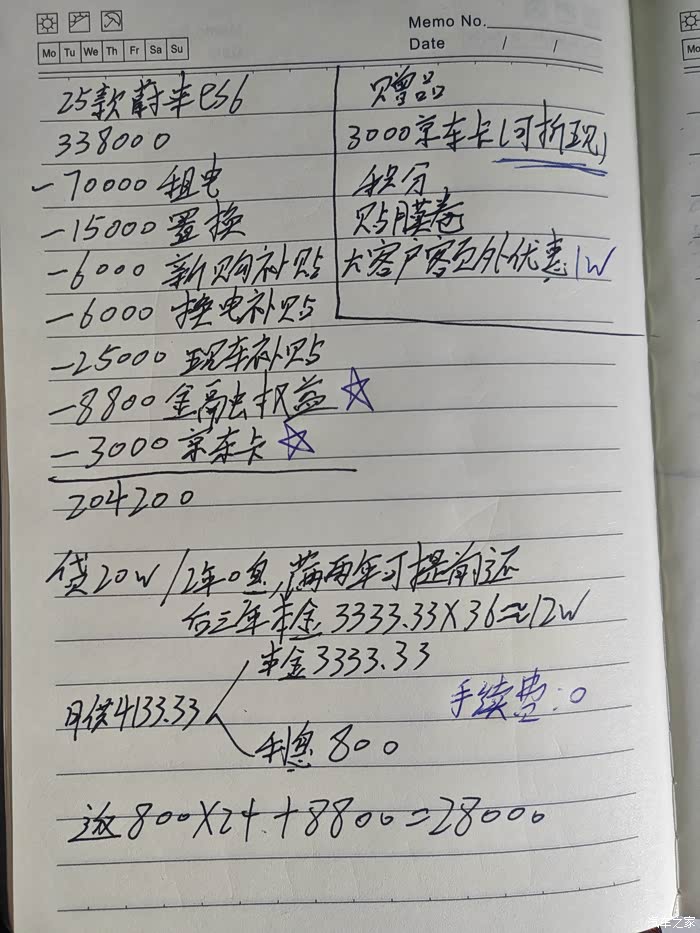 Memo No.
Date / /
Mo Tu We Th Fr Sa Su
25款蔚来es6
338000
-70000 租电
-15000 置换
-6000 新购补贴
-6000 换电补贴
-25000 现车补贴
-8800 金融权益☆
-3000 京东卡☆
204200
赠品
3000京东卡(可折现)
积分
贴膜卷
大客户客页外优惠1W
贷20W/2年0息,满两年可提前还
后三年本金3333.33X36≈12W
本金3333.33
月供4133.33
利息800
手续费:0
返800X24+8800=28000
汽车之家